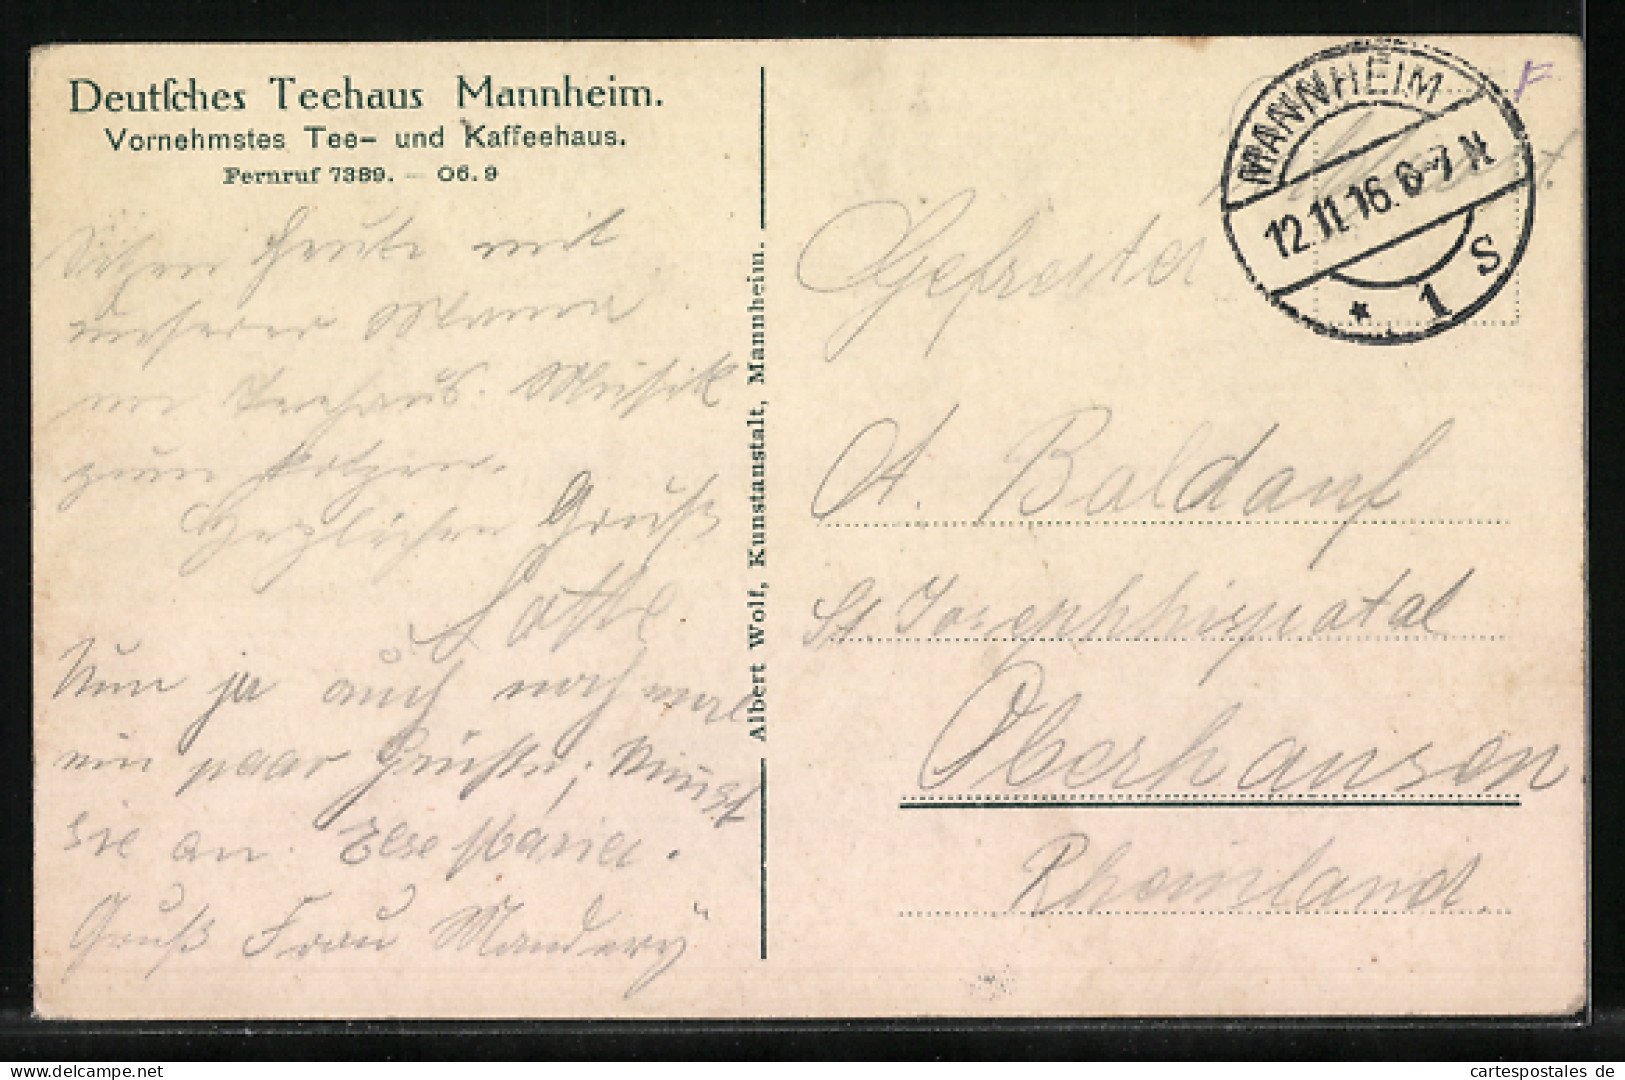 Deutſches Teehaus Mannheim.
Vornehmstes Tee- und Kaffeehaus.
Fernruf 7389. — O6. 9
Sitzen heute mit
unserer Mama
im Teehaus. Musik
zum
Herzlichen Gruß
Lotte
Nun ja auch noch mal
ein paar Grüße,
sie an Else
Gruß Frau
Albert Wolf, Kunstanstalt, Mannheim.
MANNHEIM
12.11.16. 6-7 N
* 1 S
Gefreiter
A. Baldauf
St. Josephhispatal
Oberhausen
Rheinland.
cartespostales de
www.delcampe.net